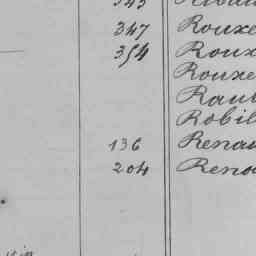 347 Rouxe
354 Roux
Rouxe
Raul
Robil
136 Renau
204 Reno